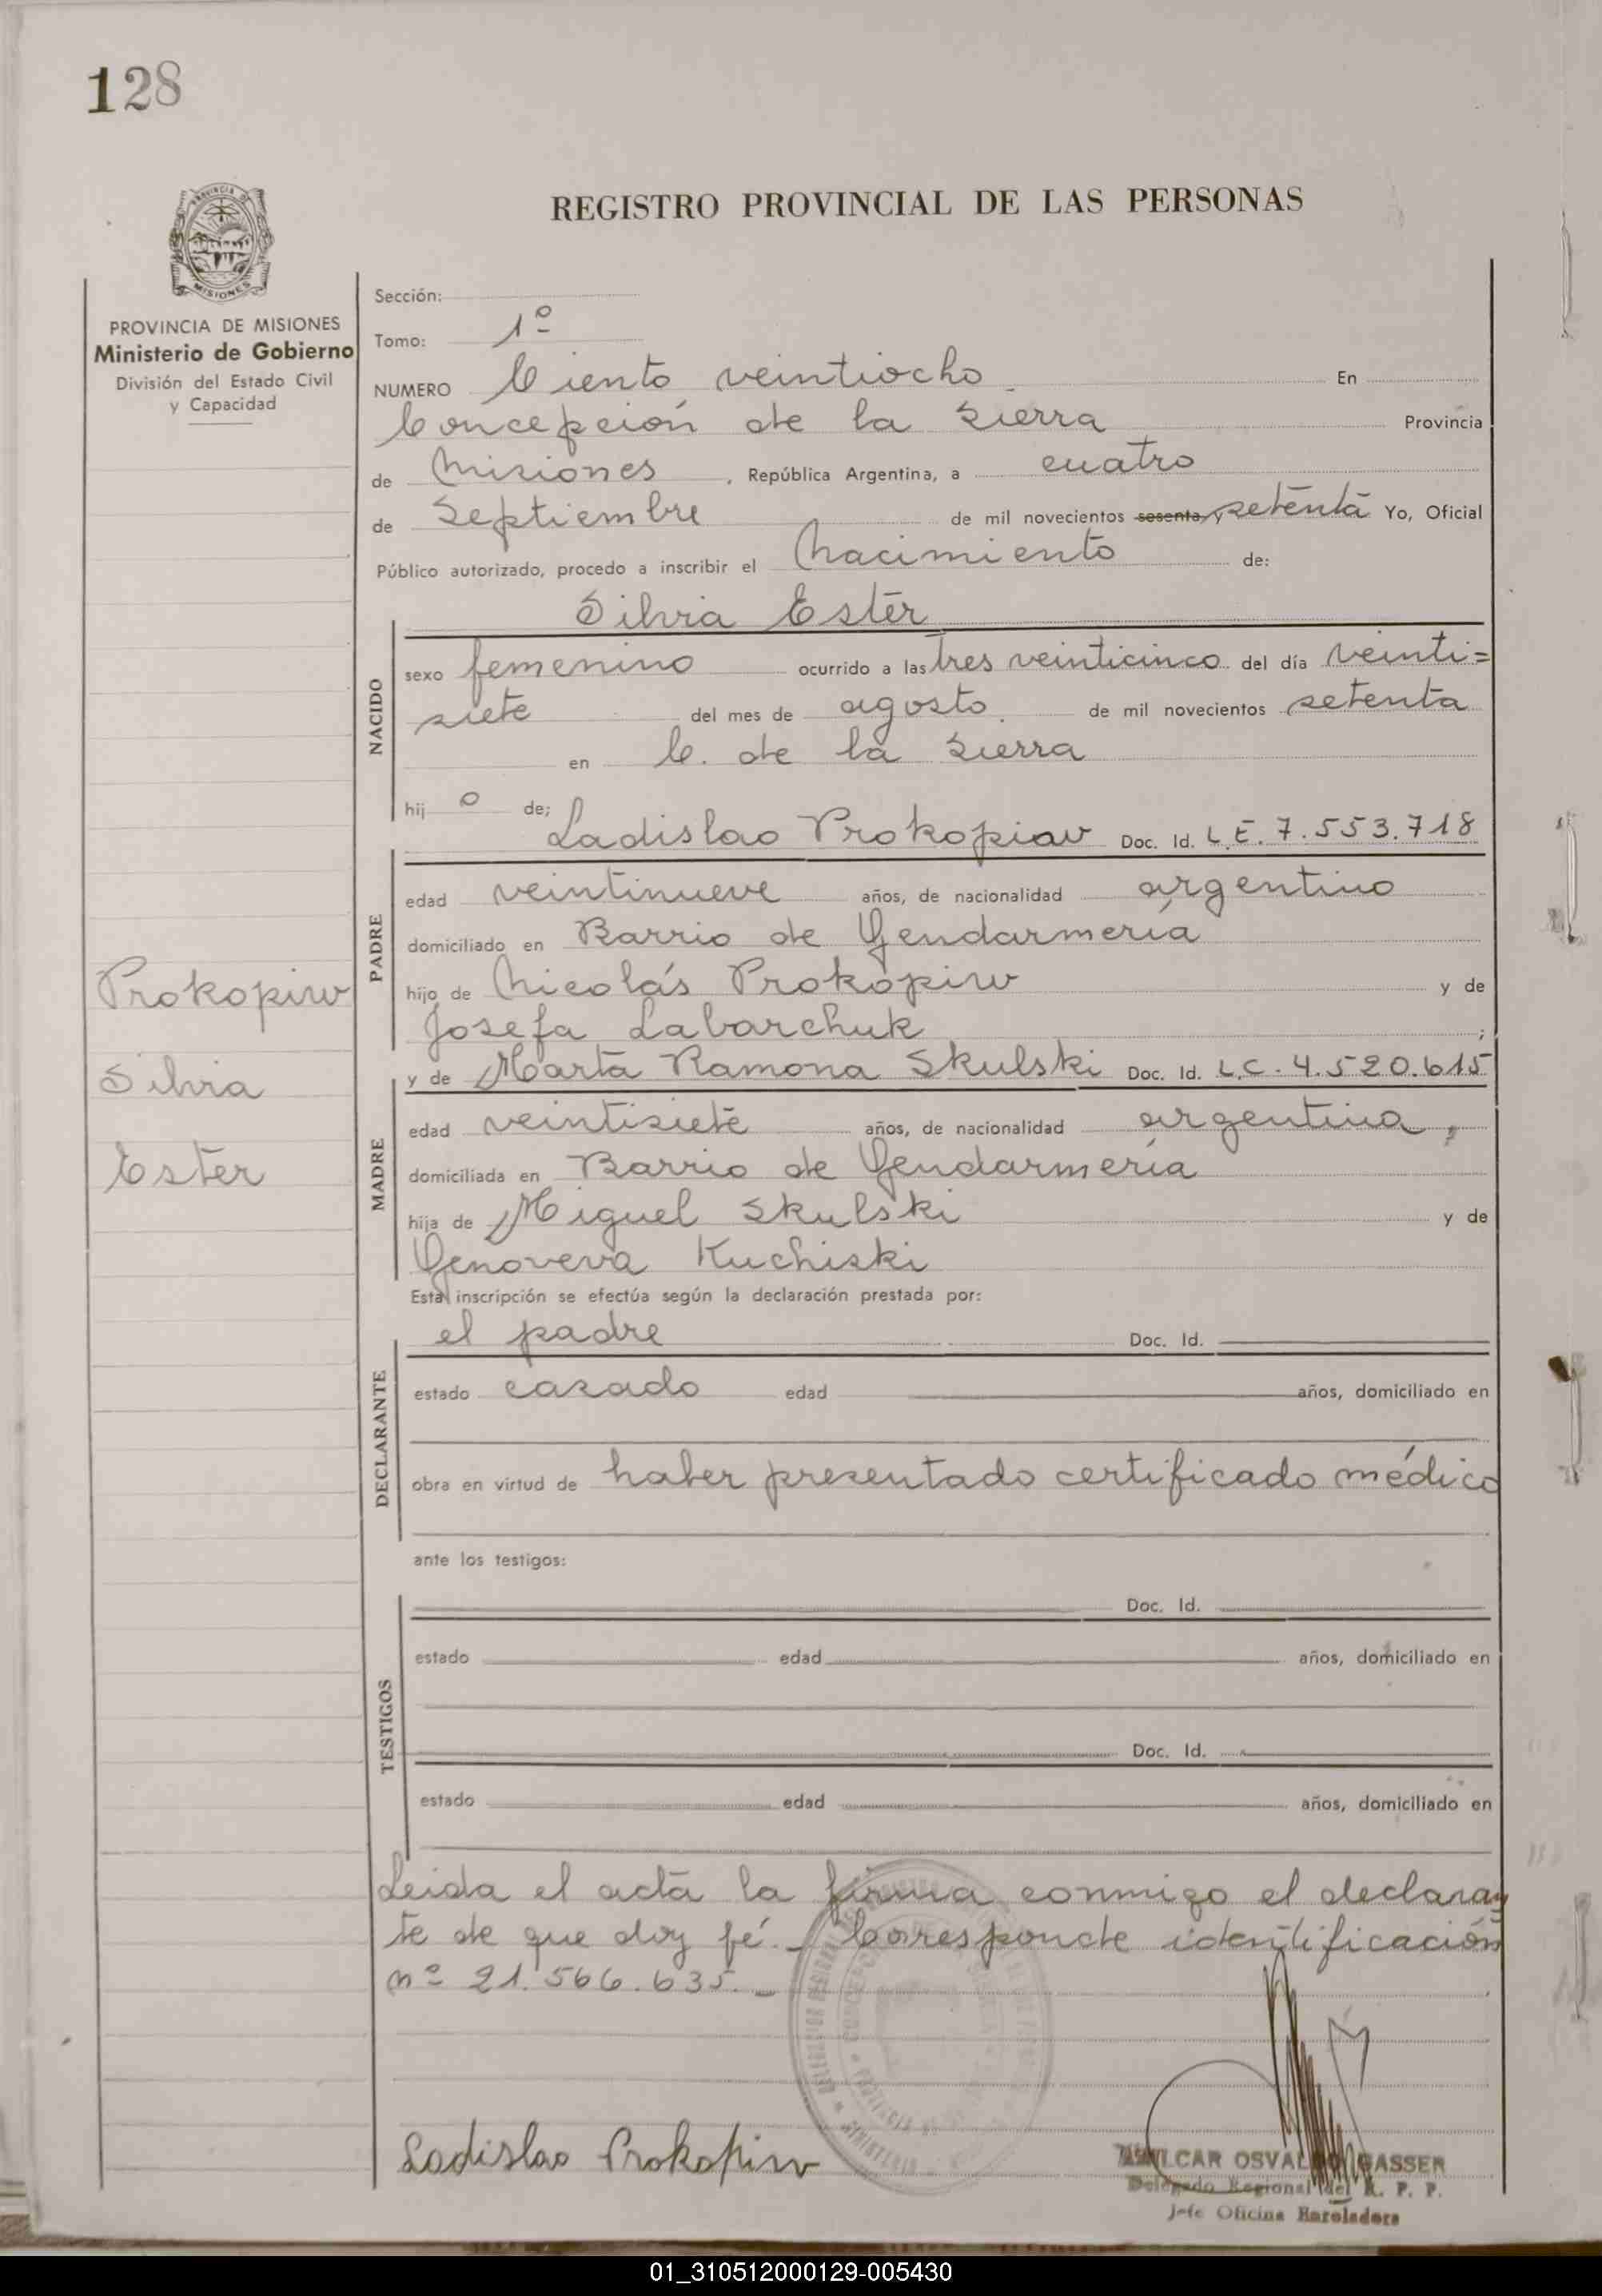 128
REGISTRO PROVINCIAL DE LAS PERSONAS
PROVINCIA
MISIONES
PROVINCIA DE MISIONES
Ministerio de Gobierno
División del Estado Civil
y Capacidad
Sección:
Tomo: 1º
NUMERO Ciento veintiocho En
Concepción de la Sierra Provincia
de Misiones, República Argentina, a cuatro
de Septiembre de mil novecientos sesenta y setenta Yo, Oficial
Público autorizado, procedo a inscribir el Nacimiento de:
Silvia Ester
NACIDO
sexo femenino ocurrido a las tres veinticinco del día veinti=
siete del mes de agosto de mil novecientos setenta
en C. de la Sierra
hij o de;
Ladislao Prokopiav Doc. Id. L.E. 7.553.718
PADRE
edad veintinueve años, de nacionalidad argentino
domiciliado en Barrio de Gendarmería
hijo de Nicolás Prokopiw y de
Josefa Labarchuk ;
y de Marta Ramona Skulski Doc. Id. L.C. 4.520.615
MADRE
edad veintisiete años, de nacionalidad argentina,
domiciliada en Barrio de Gendarmería
hija de Miguel Skulski y de
Genoveva Kuchiski
Prokopiw
Silvia
Ester
Esta inscripción se efectúa según la declaración prestada por:
el padre Doc. Id.
DECLARANTE
estado casado edad años, domiciliado en
obra en virtud de haber presentado certificado médico
ante los testigos:
Doc. Id.
TESTIGOS
estado edad años, domiciliado en
Doc. Id.
estado edad años, domiciliado en
Leida el acta la firma conmigo el declaran
te de que doy fé.- Corresponde identificación
nº 21.566.635.-
Ladislao Prokopiw
AMILCAR OSVALDO GASSER
Delegado Regional del R. P. P.
Jefe Oficina Enroladora
01_310512000129-005430